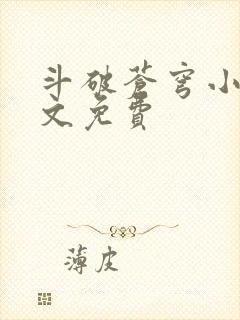 斗破苍穹小
文免費
薄皮